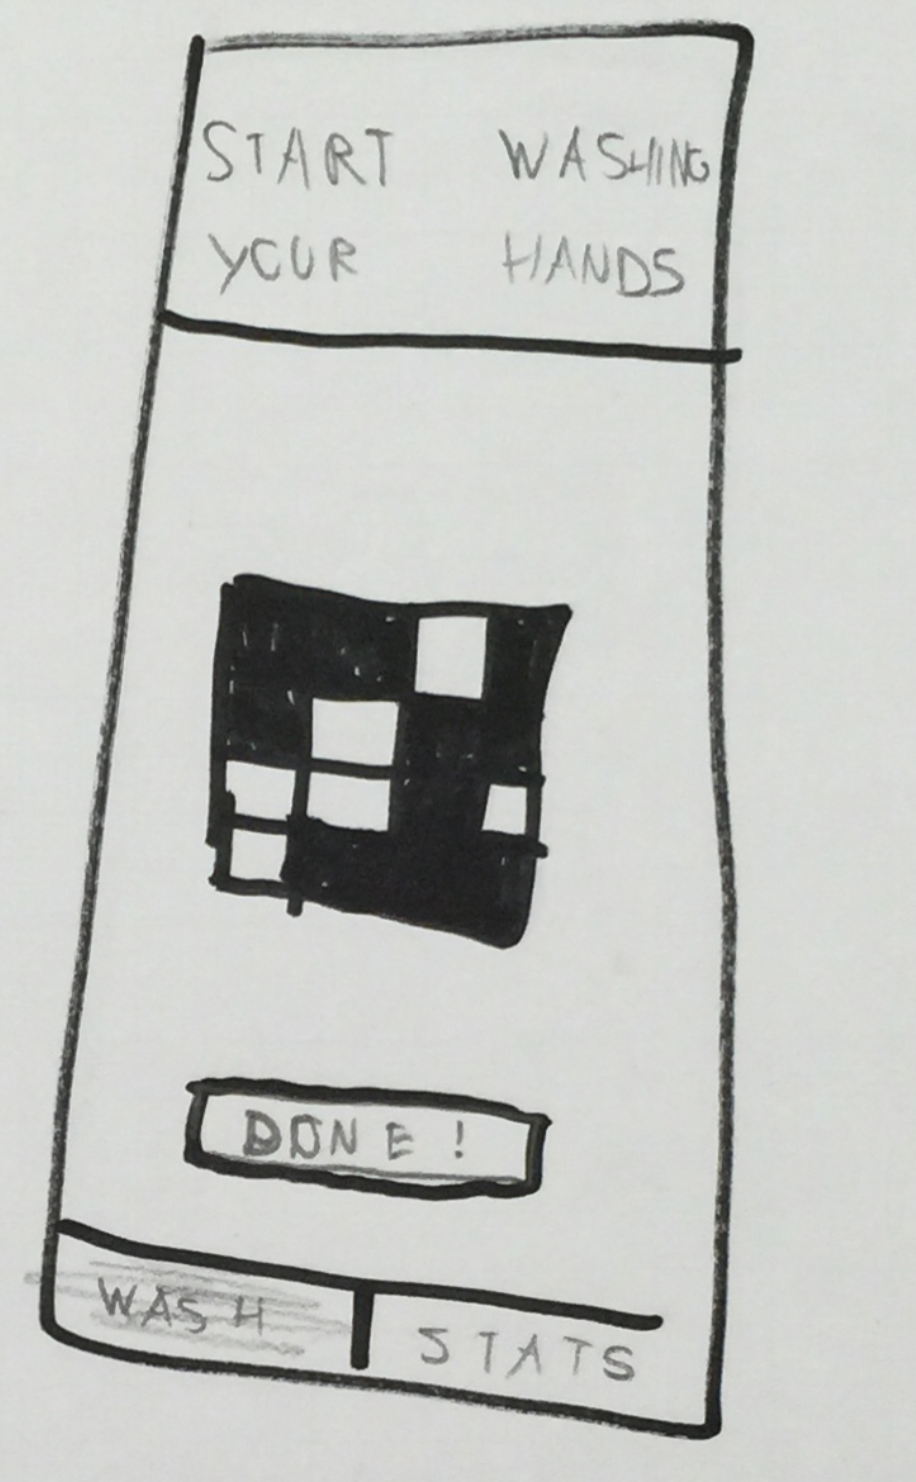 START WASHING
YOUR HANDS
DONE!
WASH STATS